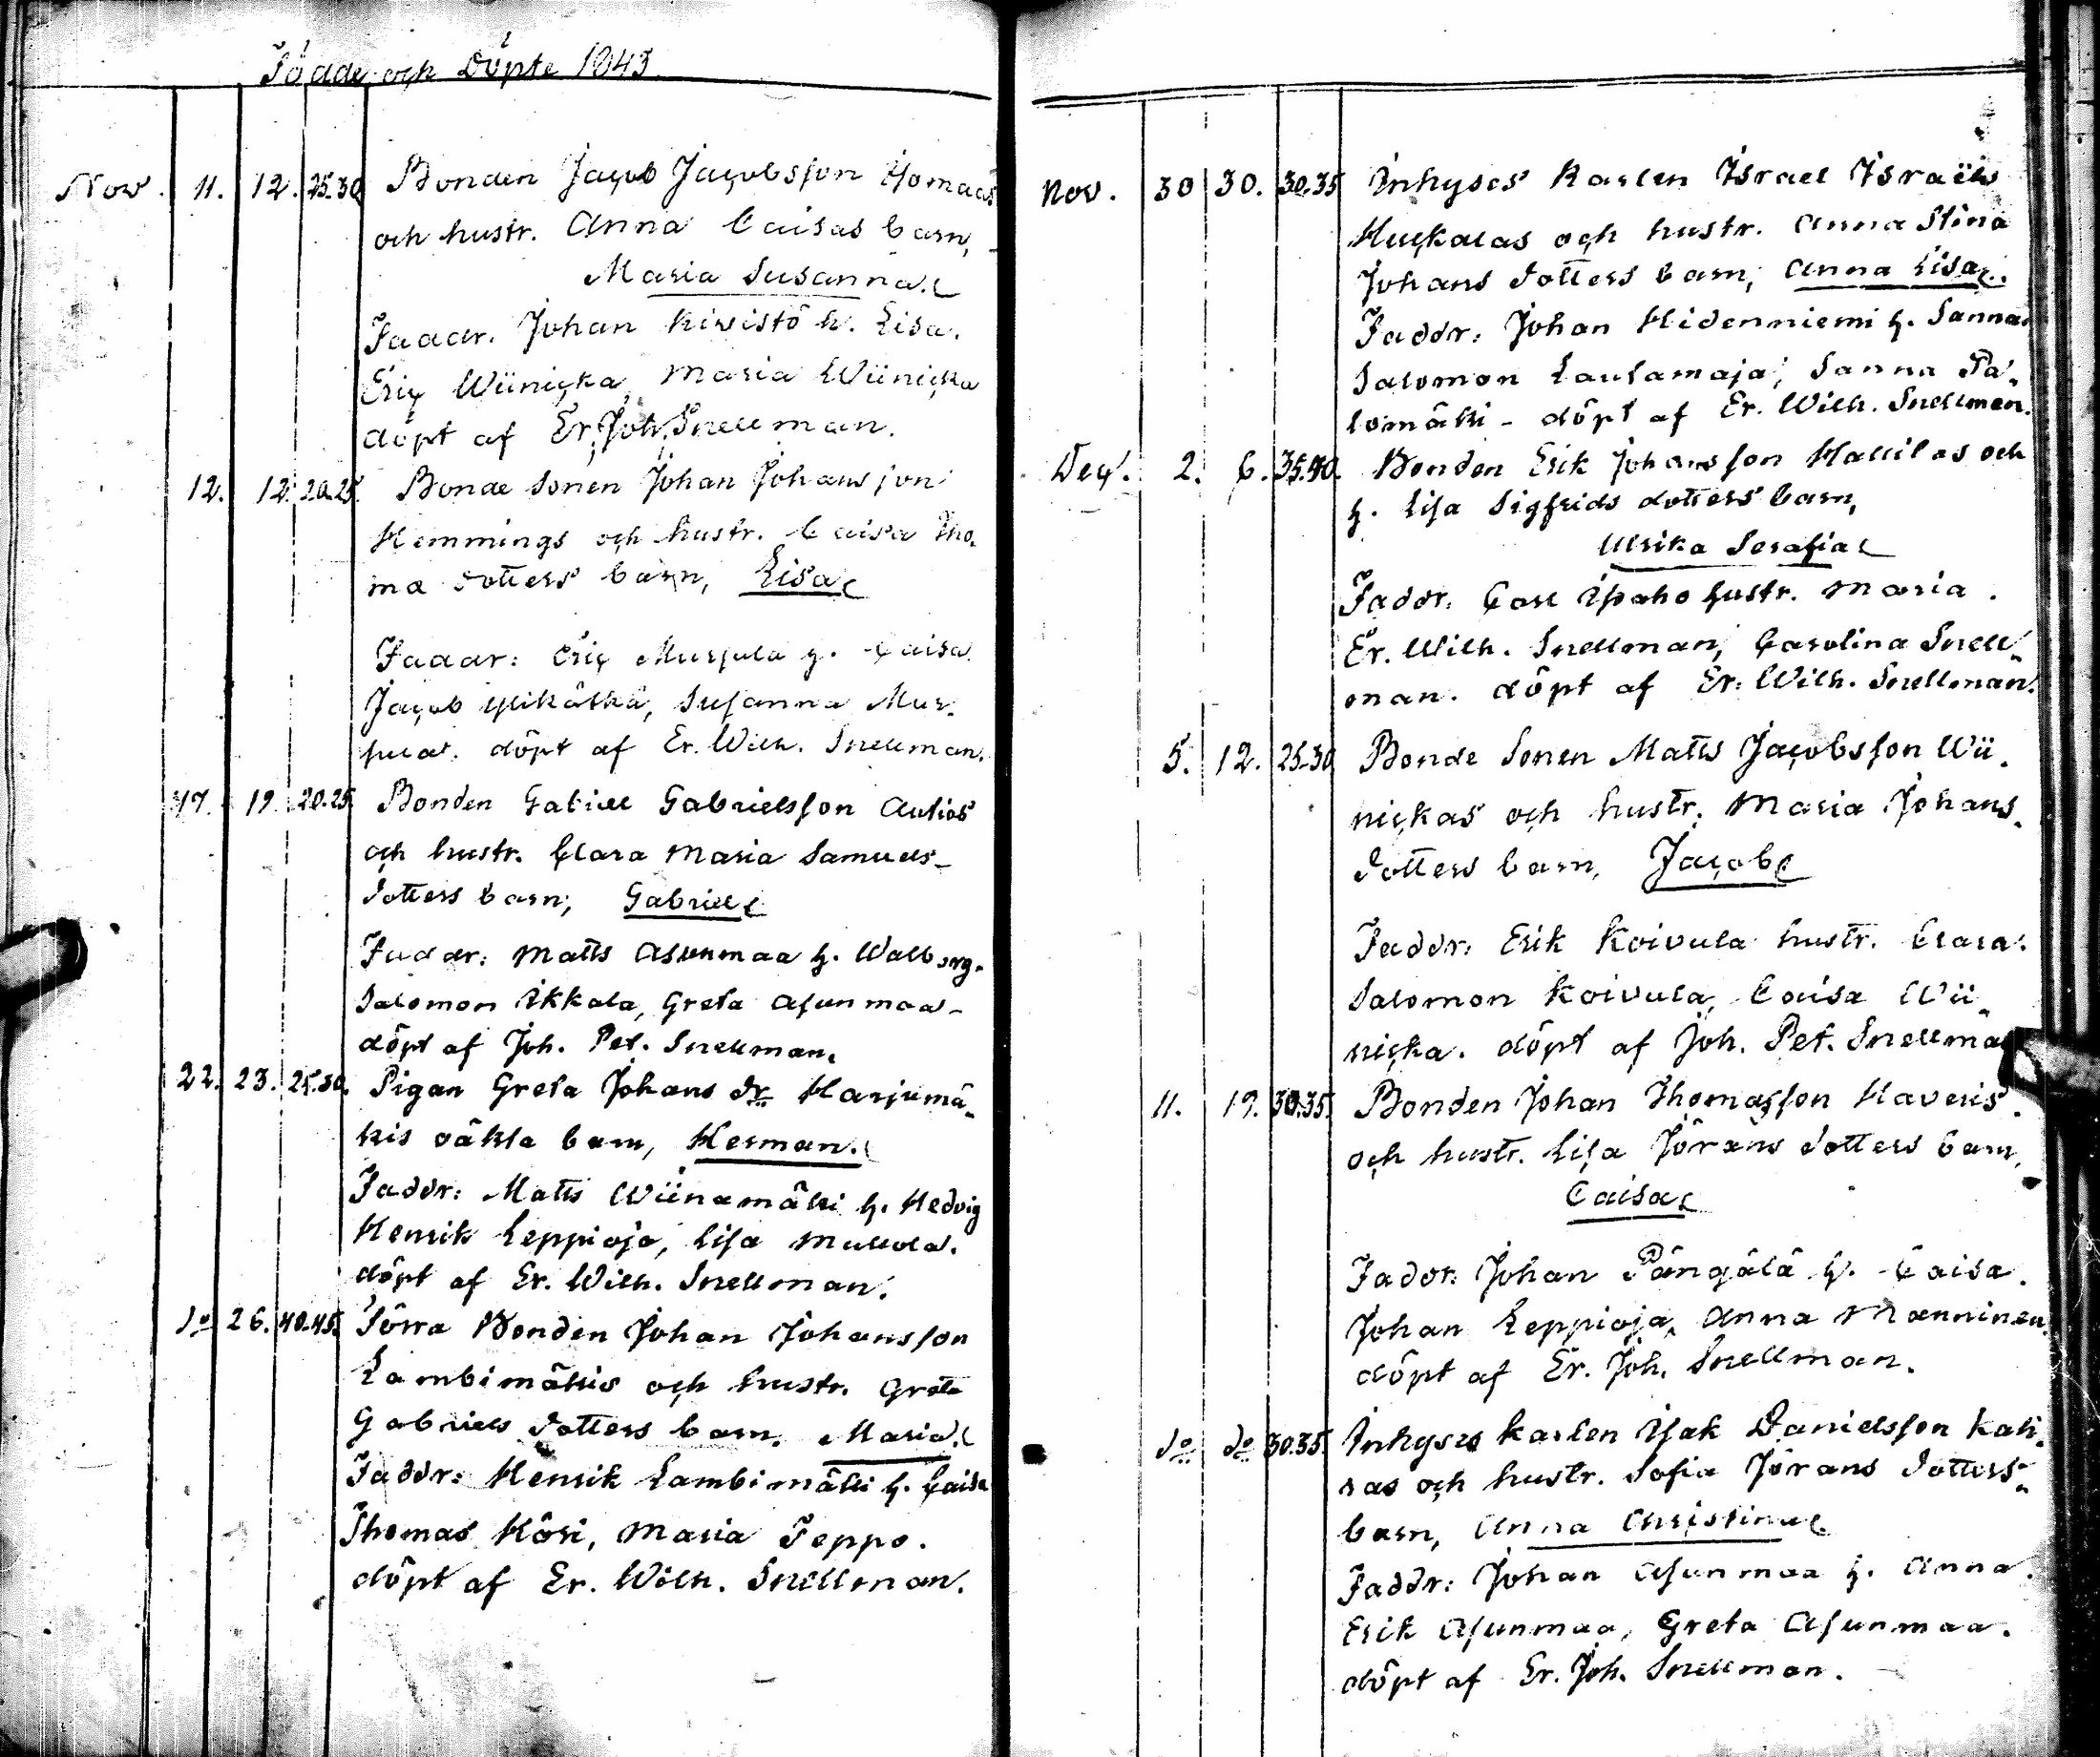 Födde och Döpte 1843
Nov. 11. 12. 25.30. Bonden Jacob Jacobsson Homaas
och hustr. Anna Caisas barn,
Maria Susanna.
Faddr. Johan Kivistö h. Lisa.
Eric Wiinicka, Maria Wiinicka
döpt af Er. Joh. Snellman.
12. 12. 20.25. Bonde Sonen Johan Johansson
Hemmings och hustr. Caisa Tho-
mæ dotters barn, Lisa
Faddr: Eric Murjula h. Caisa.
Jacob Ylikätkä, Susanna Mur-
jula. döpt af Er. Wilh. Snellman.
17. 19. 20.25. Bonden Gabriel Gabrielsson Autios
och hustr. Clara Maria Samuels-
dotters barn, Gabriel
Faddr: Matts Asunmaa h. Walborg.
Salomon Ikkala, Greta Asunmaa-
döpt af Joh. Pet. Snellman.
22. 23. 25.30. Pigan Greta Johans dr. Harjumä-
kis oäkta barn, Herman.
Faddr: Matts Wiinamäki h. Hedvig
Henrik Leppioja, Lisa Mullola.
döpt af Er. Wilh. Snellman.
do 26. 40.45. Förra Bonden Johan Johansson
Lambimäkis och hustr. Greta
Gabriels dotters barn. Maria.
Faddr: Henrik Lambimäki h. Caisa
Thomas Käri, Maria Teppo.
döpt af Er. Wilh. Snellman.
Nov. 30 30. 30.35 Inhyses Karlen Israel Israëls
Huckalas och hustr. Anna Stina
Johans dotters barn, Anna Lisa.
Faddr: Johan Hidenniemi h. Sanna
Salomon Laulamaja, Sanna Pa-
lomäki - döpt af Er. Wilh. Snellman.
Dec. 2. 6. 35.40. Bonden Erik Johansson Hallilas och
h. Lisa Sigfrids dotters barn,
Ulrika Serafia
Faddr. Carl Ipaho hustr. Maria.
Er. Wilh. Snellman, Carolina Snell-
man. döpt af Er. Wilh. Snellman.
5. 12. 25.30 Bonde Sonen Matts Jacobsson Wii-
nickas och hustr. Maria Johans-
dotters barn, Jacob
Faddr: Erik Koivula hustr. Clara.
Salomon Koivula, Caisa Wii-
nicka. döpt af Joh. Pet. Snellma
11. 19. 30.35. Bonden Johan Thomasson Haveris
och hustr. Lisa Jörans dotters barn,
Caisa
Faddr: Johan Pängälä h. Caisa.
Johan Leppioja, Anna Manninen.
döpt af Er. Joh. Snellman.
do do 30.35. Inhyses karlen Isak Danielsson Kall-
ras och hustr. Sofia Jörans dotters-
barn, Anna Christina
Faddr: Johan Asunmaa h. Anna.
Erik Asunmaa, Greta Asunmaa.
döpt af Er. Joh. Snellman.